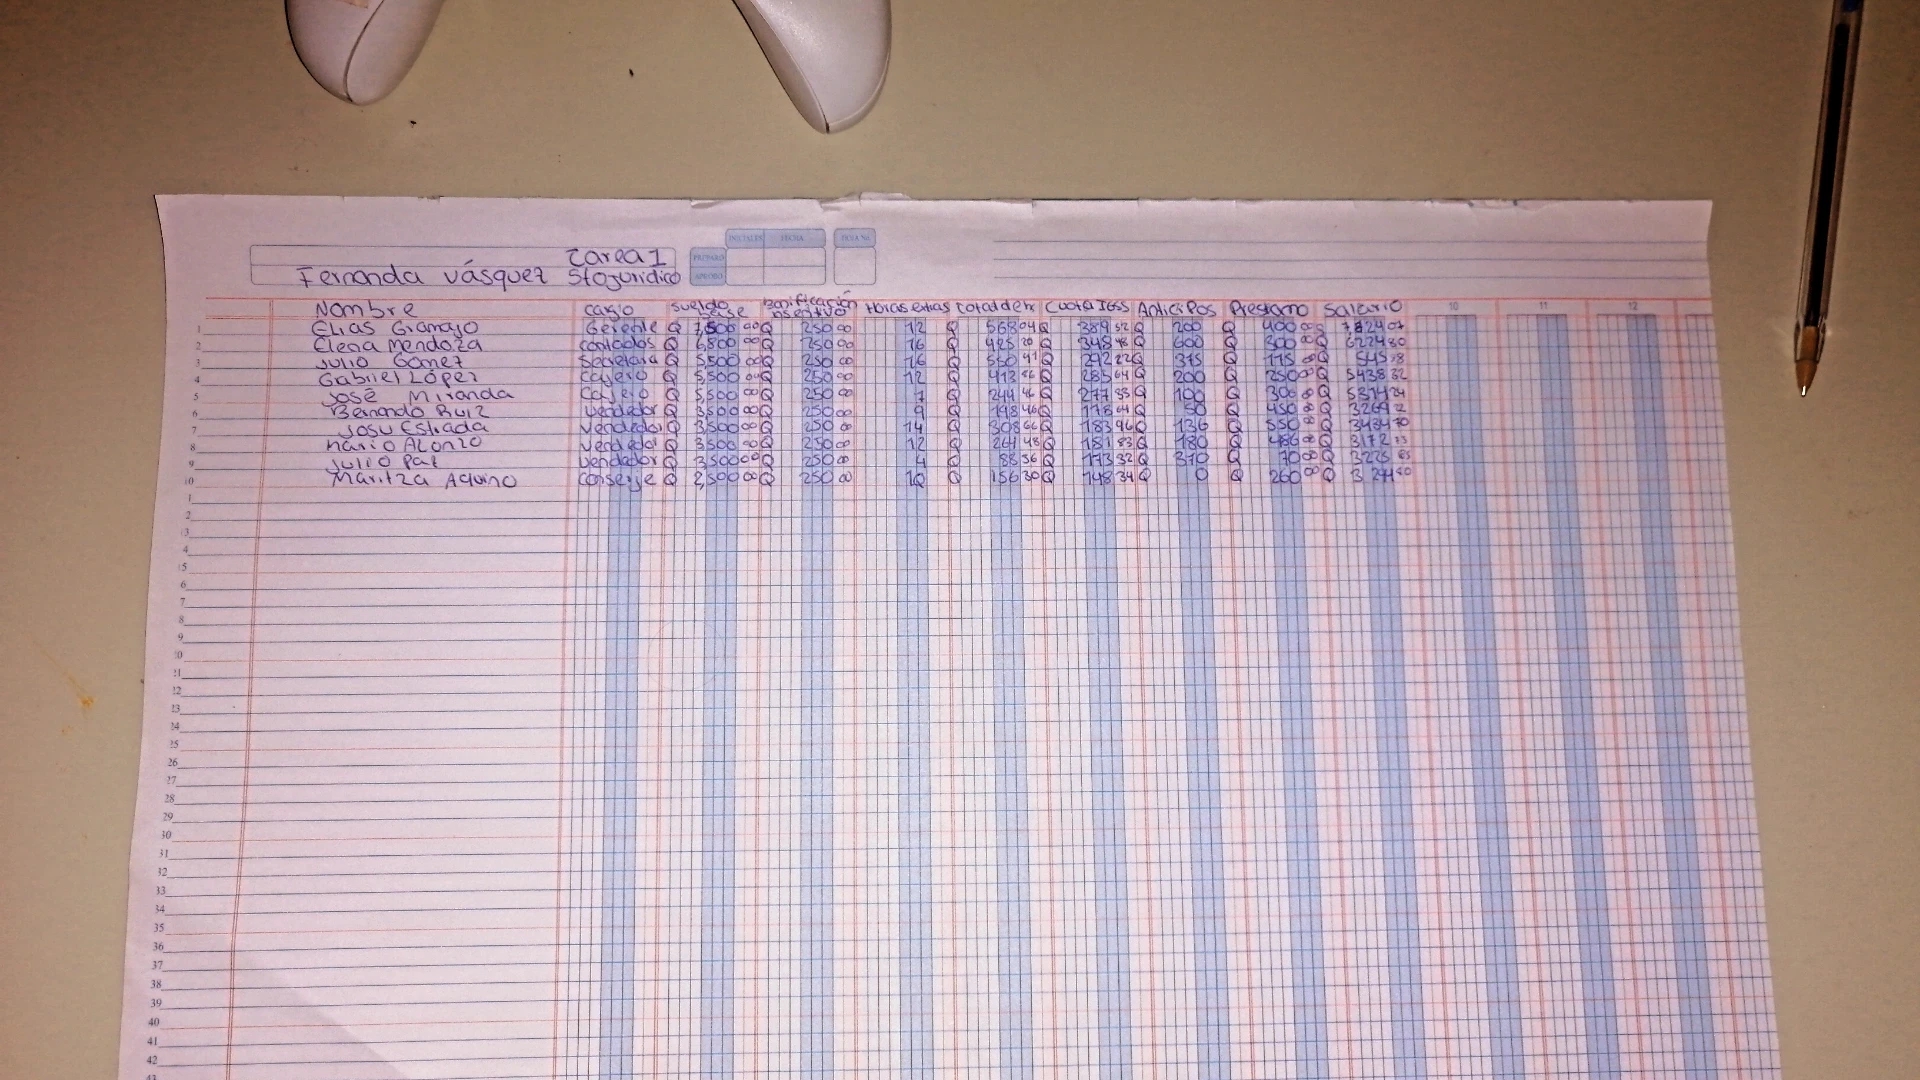 INICIALES FECHA HOJA No
Tarea 1 PREPARO
Fernanda Vásquez 5to Juridico APROBO
Nombre cargo Sueldo base Bonificación insentivo Horas extras Cuota IGSS Anticipos Prestamo Salario 10 11 12
1 Elias Gramajo Gerente Q 7,500 00 Q 250 00 12 Q 568 04 Q 389 52 Q 200 Q 400 00 Q
2 Elena Mendoza contador Q 6,800 00 Q 250 00 16 Q 425 20 Q 348 98 Q 600 Q 300 00 Q 6224 80
3 Julio Gómez Secretaria Q 5,500 00 Q 250 00 16 Q 550 41 Q 292 22 Q 375 Q 175 00 Q
4 Gabriel López Cajero Q 5,500 00 Q 250 00 12 Q 413 Q 285 64 Q 200 Q 250 00 Q 5438 32
5 José Miranda Cajero Q 5,500 00 Q 250 00 7 Q 244 Q 277 Q 100 Q 300 00 Q
6 Bernardo Ruiz vendedor Q 3,500 00 Q 250 00 9 Q 198 Q 178 64 Q 50 Q 450 00 Q
7 Josu Estrada vendedor Q 3,500 00 Q 250 00 14 Q 308 66 Q 183 96 Q 136 Q 550 00 Q
8 Mario Alonzo vendedor Q 3,500 00 Q 250 00 12 Q 264 48 Q 181 83 Q 180 Q 486 00 Q 3172
9 Julio Paz vendedor Q 3,500 00 Q 250 00 4 Q 88 56 Q 173 32 Q 370 Q 70 00 Q 3225
10 Maritza Aquino conserje Q 2,500 00 Q 250 00 10 Q 156 30 Q 148 34 Q 0 Q 260 00 Q
1
2
3
4
5
6
7
8
9
20
21
22
23
24
25
26
27
28
29
30
31
32
33
34
35
36
37
38
39
40
41
42
43